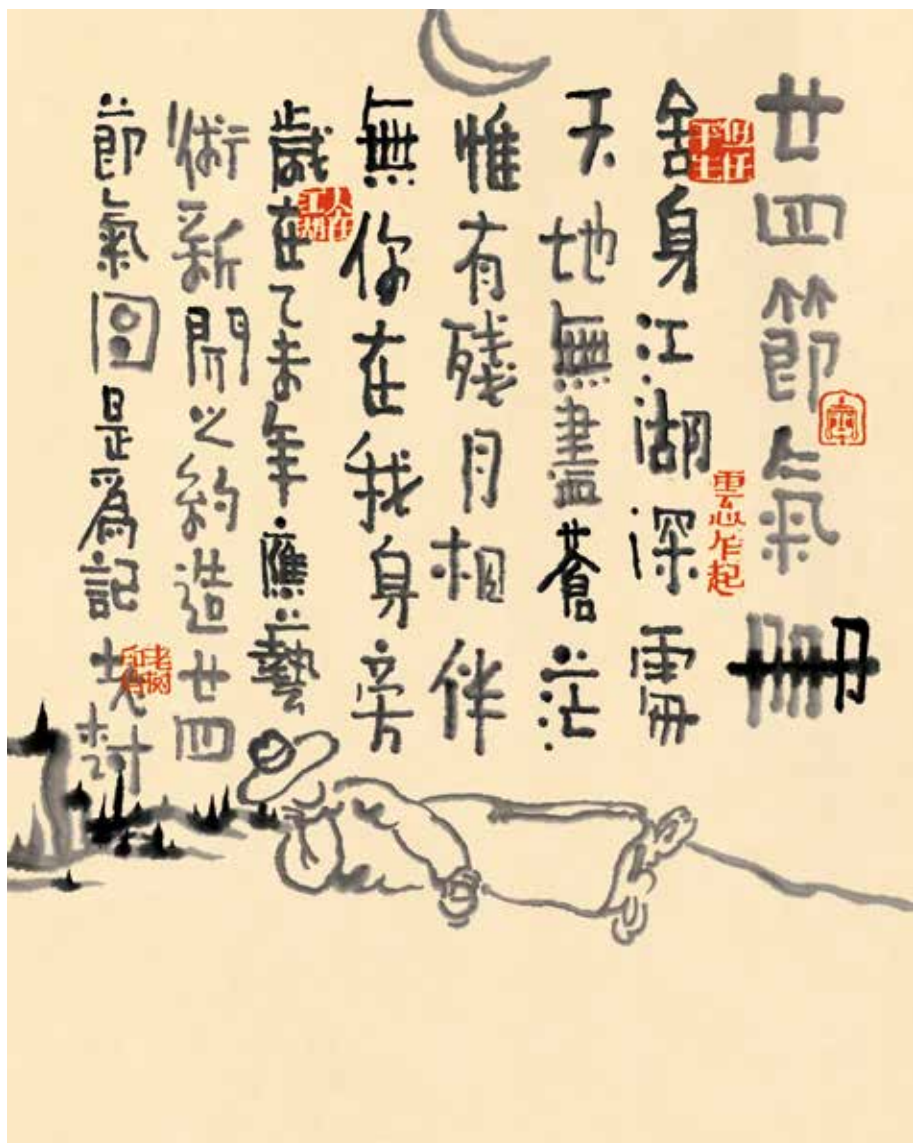 廿四節氣冊
舍身江湖深處
天地無盡蒼茫
惟有殘月相伴
無你在我身旁
歲在乙未年應藝
術新聞之約造廿四
節氣圖是為記 老樹
雲心乍起
人在江湖
老樹